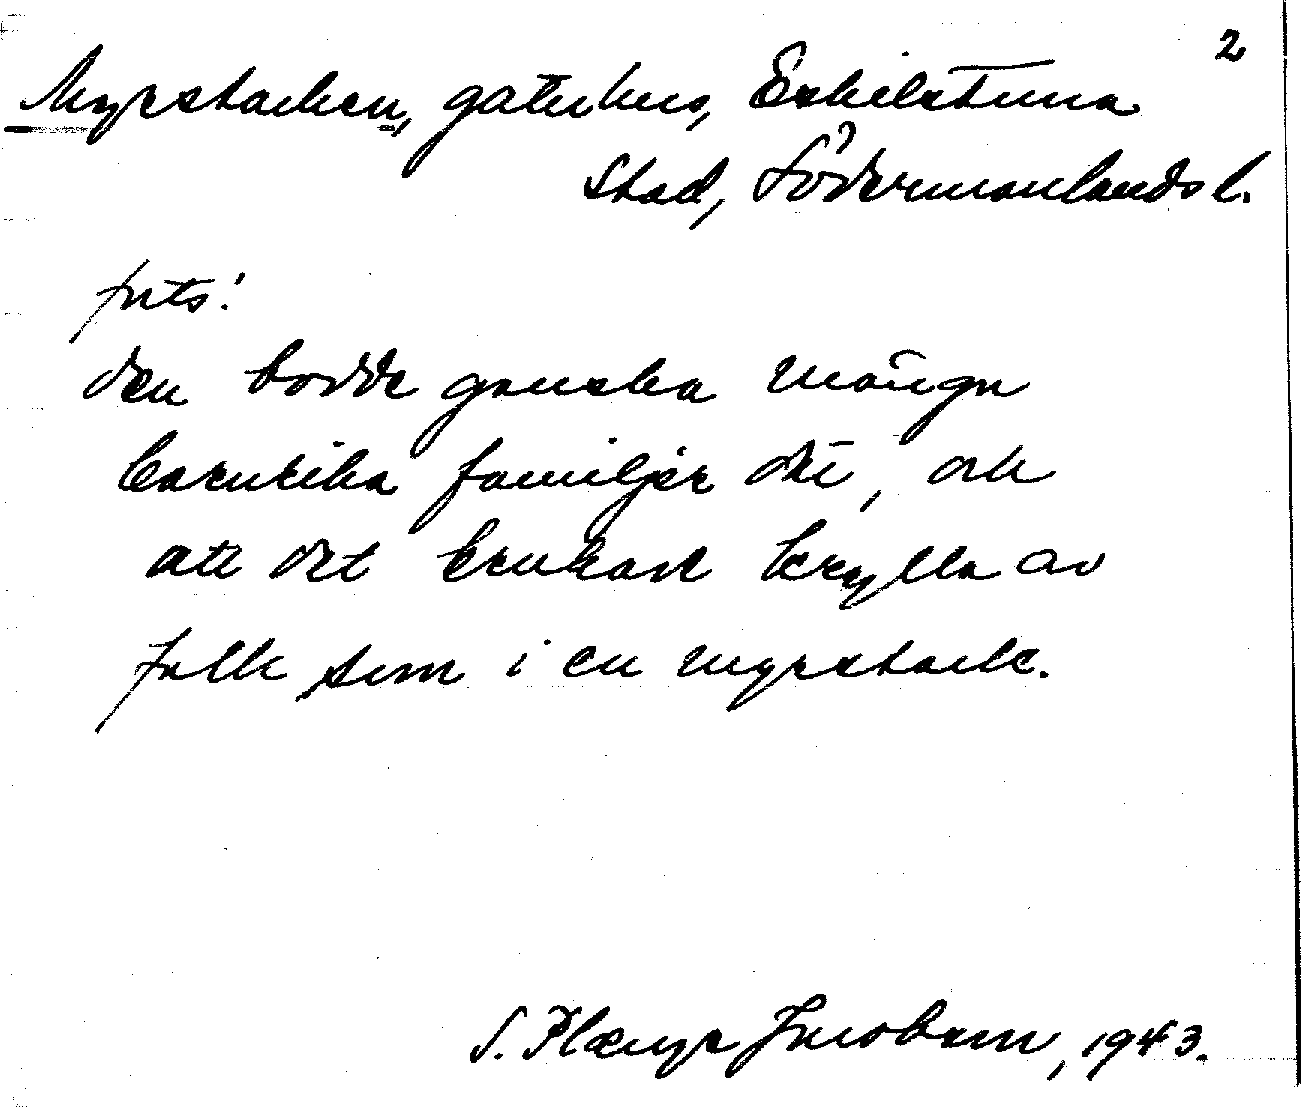 2
Myrstacken, gatuhus, Eskilstuna
stad, Södermanlands l.
forts!
den bodde ganska många
barnrika familjer där, och
att det brukade krylla av
folk som i en myrstack.
S. Plænge Jacobson, 1943.